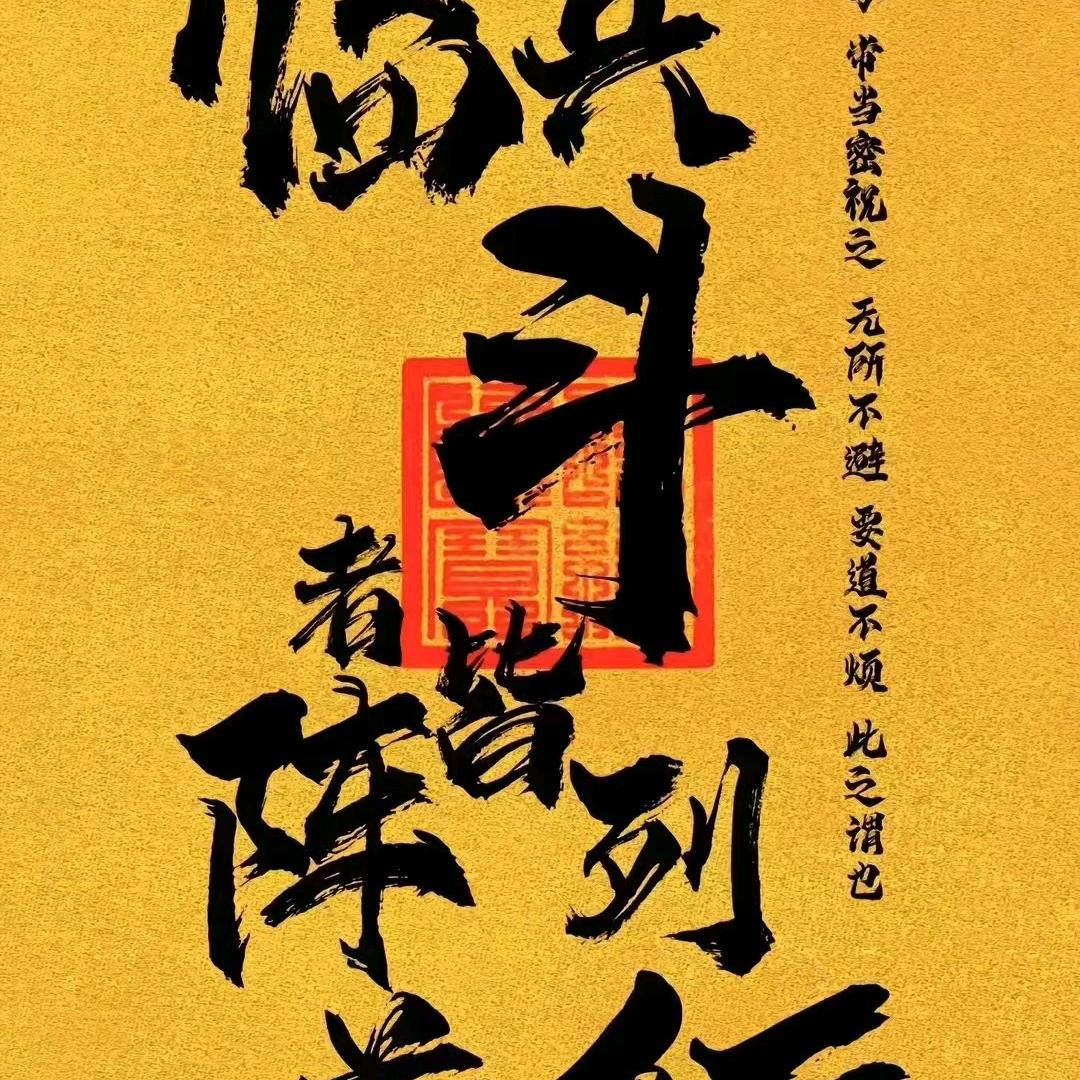 临兵
斗
者皆
阵列
前行
常当密祝之 无所不避 要道不烦 此之谓也